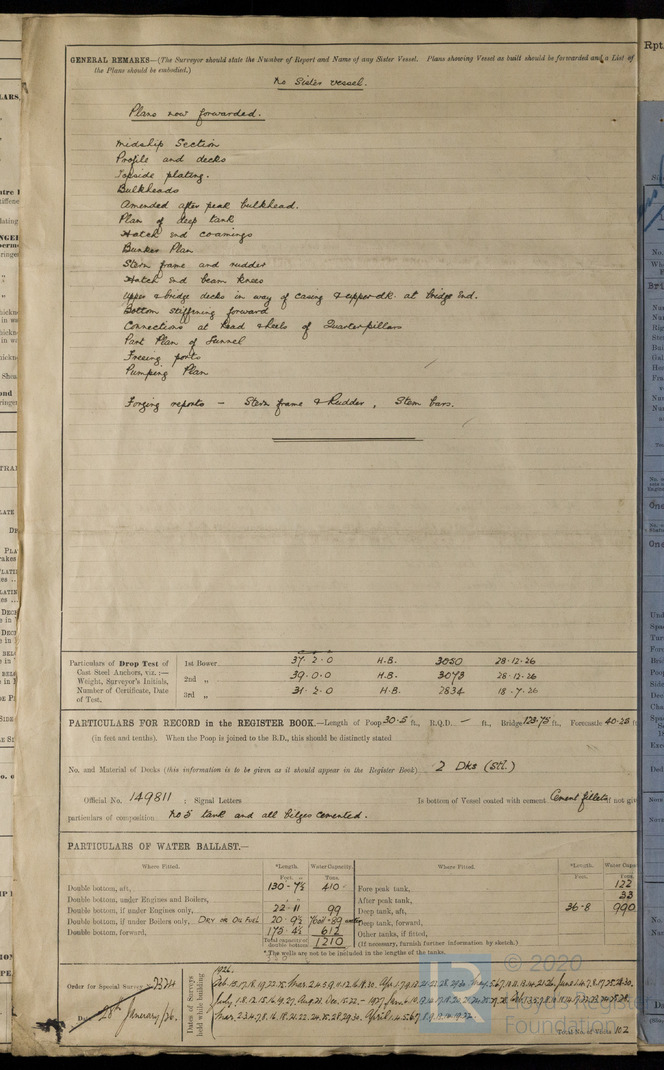 GENERAL REMARKS—(The Surveyor should state the Number of Report and Name of any Sister Vessel. Plans showing Vessel as built should be forwarded and a List of
the Plans should be embodied.)
No Sister vessel.
Plans now forwarded.
Midship Section
Profile and decks
Topside plating.
Bulkheads
Amended after peak bulkhead.
Plan of deep tank
Hatch end coamings
Bunker Plan
Stern frame and rudder
Hatch end beam knees
Upper & bridge decks in way of casing & upper dk. at bridge end.
Bottom stiffening forward
Connections at head & heels of Quarter pillars
Part Plan of Tunnel
Freeing ports
Pumping Plan
Forging reports — Stern frame & Rudder, Stem bars.
Particulars of Drop Test of Cast Steel Anchors, viz.:— Weight, Surveyor's Initials, Number of Certificate, Date of Test.
1st Bower 37·2·0 H.B. 3050 28·12·26
2nd „ 39·0·0 H.B. 3073 28·12·26
3rd „ 31·2·0 H.B. 2834 18·7·26
PARTICULARS FOR RECORD in the REGISTER BOOK.—Length of Poop 30·5 ft., R.Q.D. — ft., Bridge 123·75 ft., Forecastle 40·25 ft
(in feet and tenths). When the Poop is joined to the B.D., this should be distinctly stated
No. and Material of Decks (this information is to be given as it should appear in the Register Book) 2 Dks (Stl.)
Official No. 149811 ; Signal Letters Is bottom of Vessel coated with cement Cement fillets if not giv
particulars of composition No 5 tank and all bilges cemented.
PARTICULARS OF WATER BALLAST.—
Where Fitted. *Length. Water Capacity. Where Fitted. *Length. Water Capa
Feet. Tons. Feet. Tons.
Double bottom, aft, 130-7½ 410 Fore peak tank, 122
Double bottom, under Engines and Boilers, After peak tank, 33
Double bottom, if under Engines only, 22-11 99 Deep tank, aft, 36-8 990
Double bottom, if under Boilers only, Dry or Oil Fuel 20·9½ 89 Deep tank, forward,
Double bottom, forward, 175·4½ 612 Other tanks, if fitted,
Total capacity of double bottom 1210 (If necessary, furnish further information by sketch.)
*The wells are not to be included in the lengths of the tanks.
Order for Special Survey No.
Date 28th January/26.
Dates of Surveys held while building
1926.
Total No. of Visits 102
© 2020
Lloyd's Register
Foundation